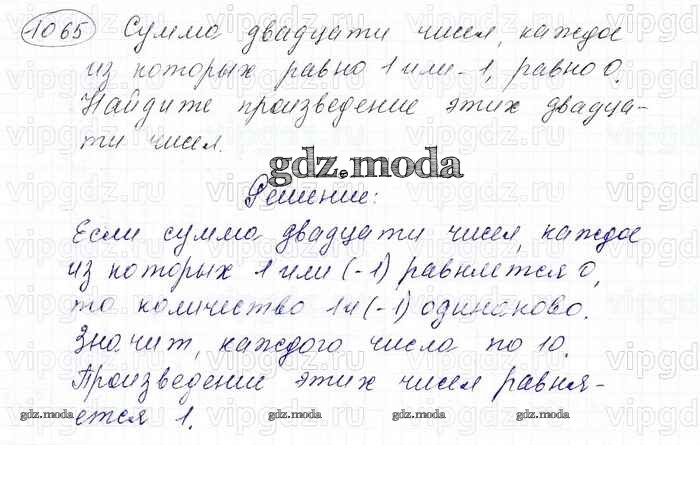 1065 Сумма двадцати чисел, каждое
из которых равно 1 или -1, равно 0.
Найдите произведение этих двадца-
ти чисел.
gdz.moda
Решение:
Если сумма двадцати чисел, каждое
из которых 1 или (-1) равняется 0,
то количество 1 и (-1) одинаково.
Значит, каждого числа по 10.
Произведение этих чисел равня-
ется 1.
gdz.moda gdz.moda gdz.moda gdz.moda
vipgdz.ru